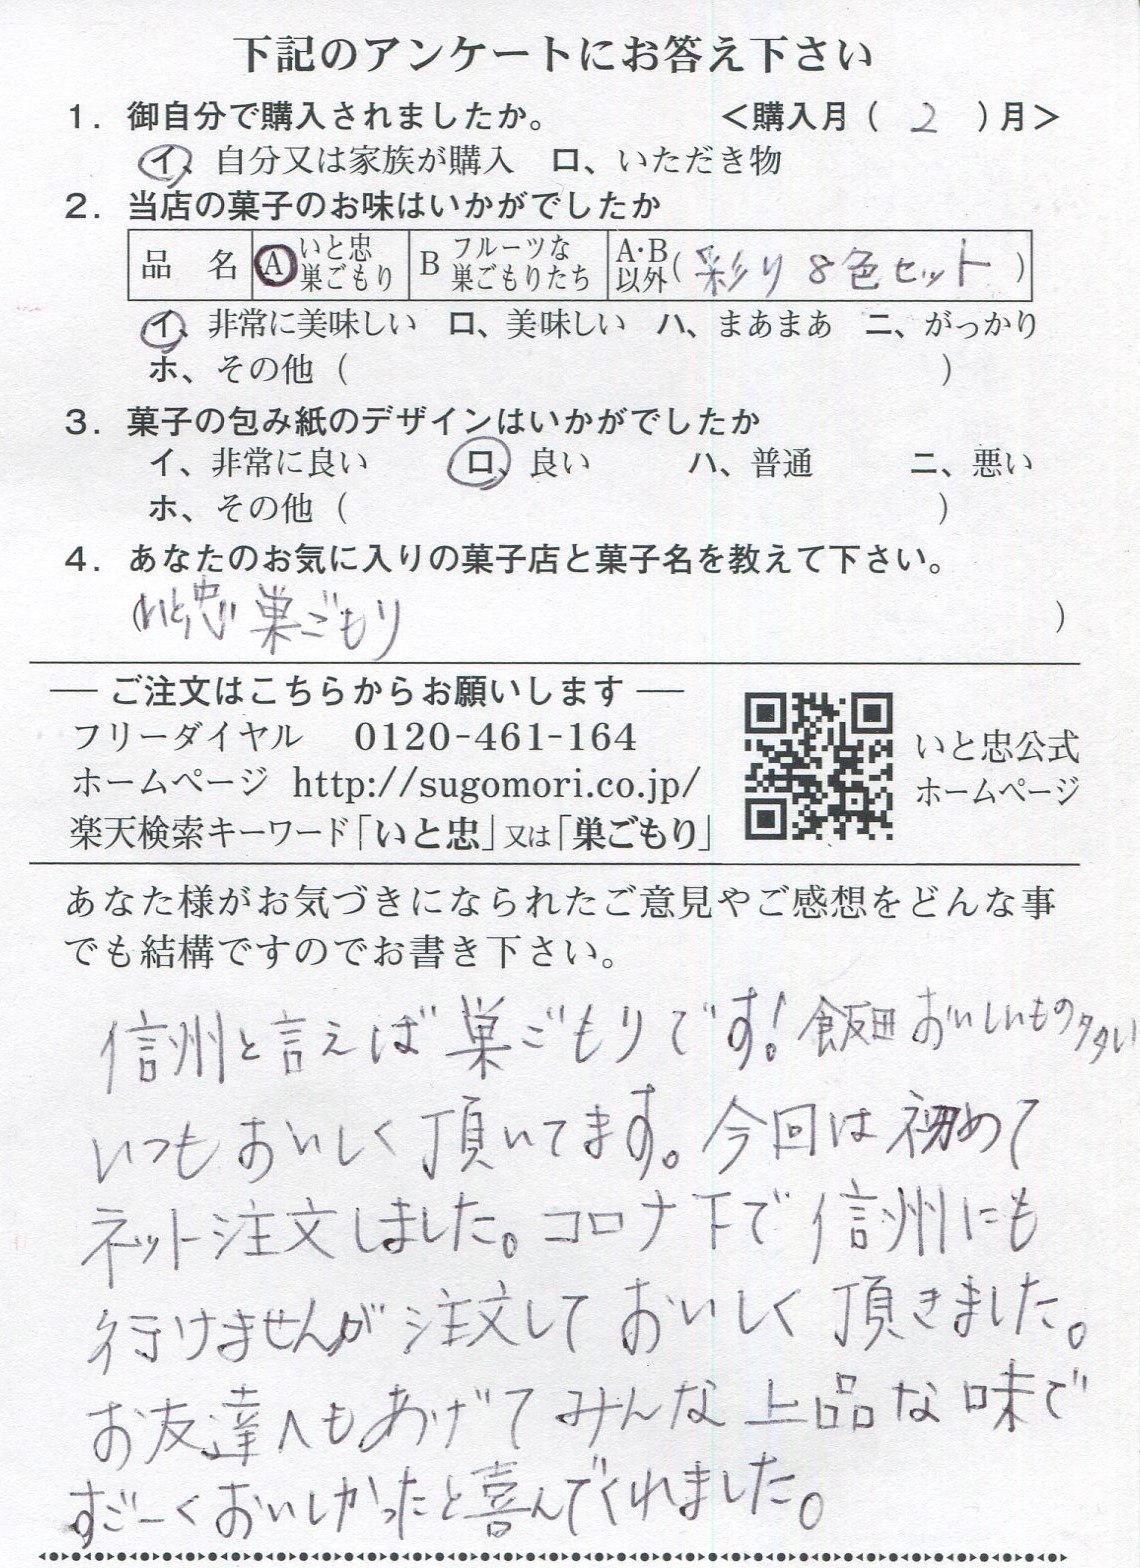 下記のアンケートにお答え下さい
1. 御自分で購入されましたか。 <購入月( 2 )月>
イ、自分又は家族が購入 ロ、いただき物
2. 当店の菓子のお味はいかがでしたか
品 名 A いと忠 巣ごもり B フルーツな 巣ごもりたち A・B 以外(彩り 8色セット)
イ、非常に美味しい ロ、美味しい ハ、まあまあ ニ、がっかり
ホ、その他( )
3. 菓子の包み紙のデザインはいかがでしたか
イ、非常に良い ロ、良い ハ、普通 ニ、悪い
ホ、その他( )
4. あなたのお気に入りの菓子店と菓子名を教えて下さい。
(いと忠 巣ごもり )
― ご注文はこちらからお願いします ―
フリーダイヤル 0120-461-164
ホームページ http://sugomori.co.jp/
楽天検索キーワード「いと忠」又は「巣ごもり」
いと忠公式
ホームページ
あなた様がお気づきになられたご意見やご感想をどんな事
でも結構ですのでお書き下さい。
信州と言えば巣ごもりです!飯田おいしいもの多い
いつもおいしく頂いてます。今回は初めて
ネット注文しました。コロナ下で信州にも
行けませんが注文しておいしく頂きました。
お友達へもあげてみんな上品な味で
すごーくおいしかったと喜んでくれました。